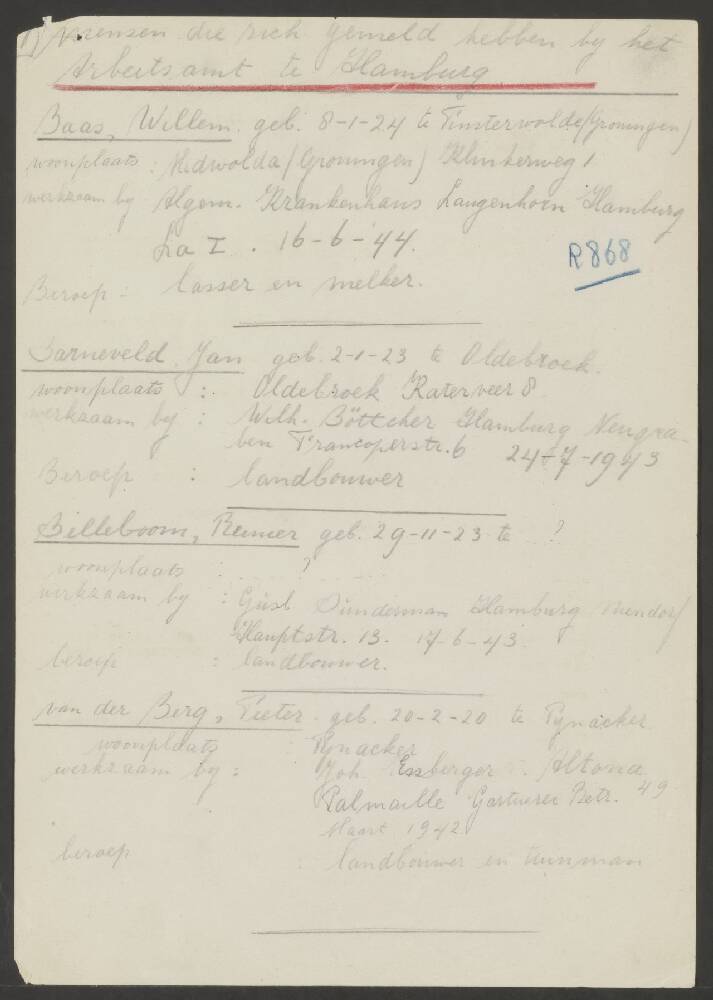 1) Mensen die zich gemeld hebben by het
Arbeitsamt te Hamburg
Baas, Willem. geb. 8-1-24 te Finsterwolde (Groningen)
woonplaats : Midwolda (Groningen) Klinkerweg 1
werkzaam by Algem. Krankenhaus Langenhorn Hamburg
La I. 16-6-'44.
R868
Beroep : lasser en melker.
Barneveld, Jan geb. 2-1-23 te Oldebroek.
woonplaats : Oldebroek Katerveer 8
werkzaam by : Wilh. Böttcher Hamburg Neugra-
ben Francoperstr. 6 24-7-1943
Beroep : landbouwer
Belleboom, Reinier geb. 29-11-23 te ?
woonplaats : ?
werkzaam by : Gust Sünderman Hamburg
Hauptstr. 13. 17-6-43.
beroep : landbouwer.
van der Berg, Pieter. geb. 20-2-20 te Pynacker
woonplaats : Pynacker
werkzaam by : Joh. Essberger Altona
Palmaille Gartnerei Betr. 49
Maart 1942
beroep : landbouwer en tuinman